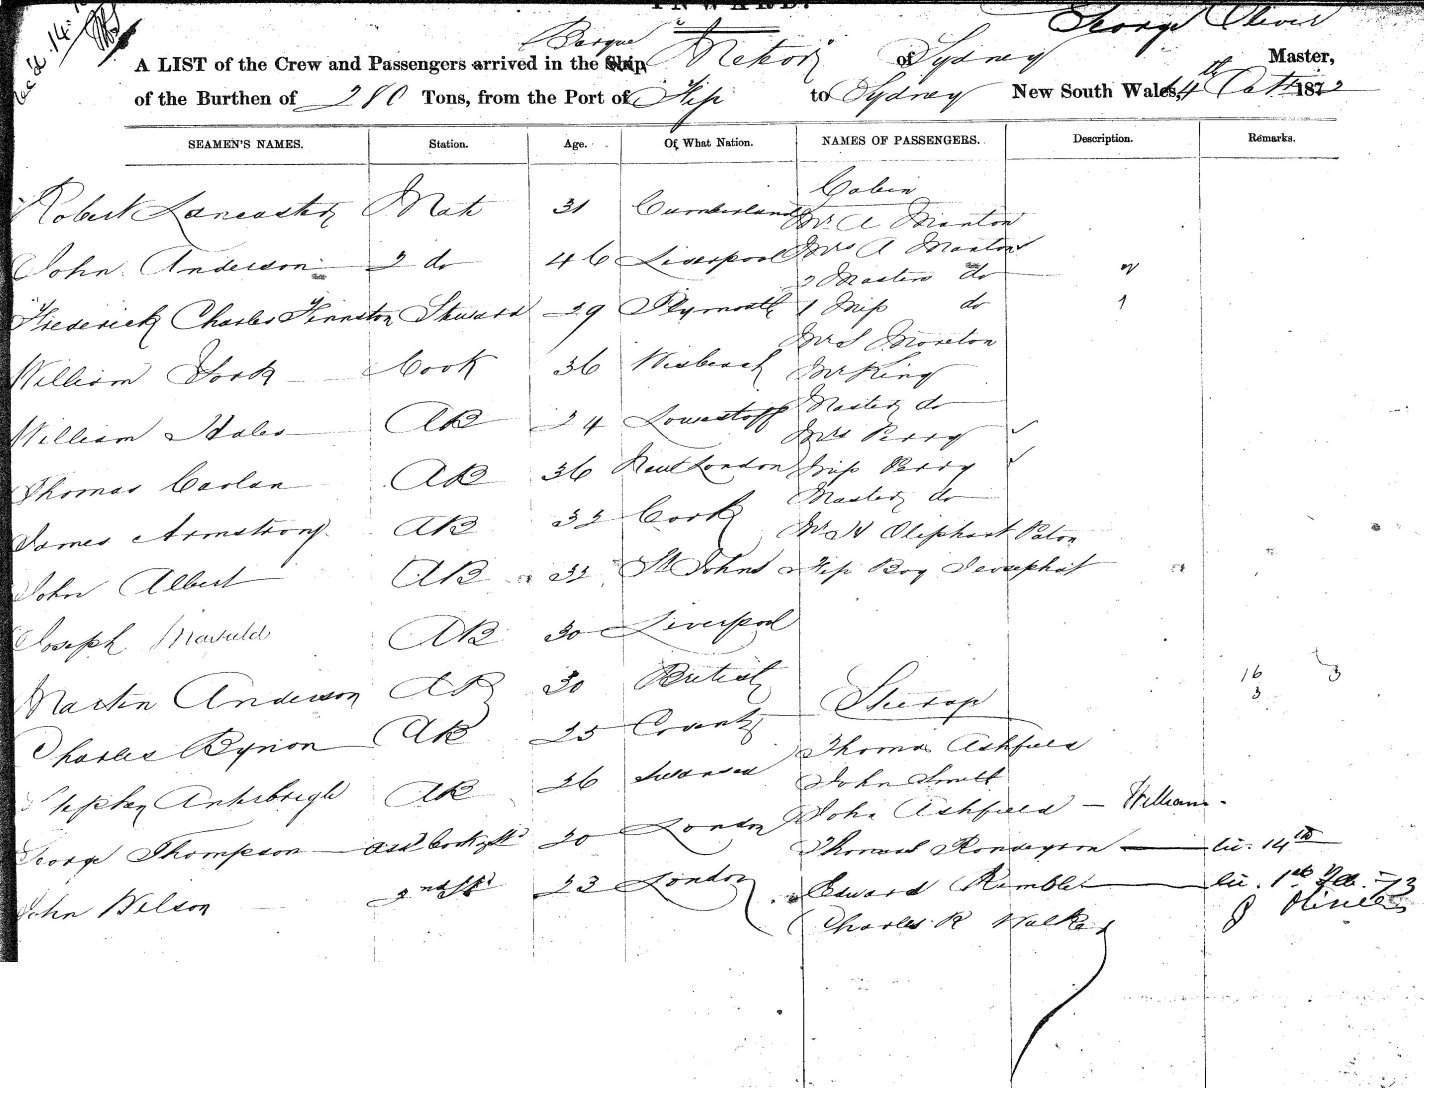 INWARD.
George Oliver
Rec'd 14.
Barque
A LIST of the Crew and Passengers arrived in the Ship of Sydney Master,
of the Burthen of 280 Tons, from the Port of Fiji to Sydney New South Wales, 14th Oct 1872
SEAMEN'S NAMES. Station. Age. Of What Nation. NAMES OF PASSENGERS. Description. Remarks.
Cabin
Robert Lancaster Mate 31 Cumberland Mr A Manton
Mrs A Manton
John Anderson 2 do 46 Liverpool 2 Masters do 2
Frederick Charles Steward 29 Plymouth 1 Miss do 1
Mr S Moreton
William York Cook 36 Wisbeach Mr King
Master do
William Hales AB 24 Lowestoff Mrs Perry
Thomas Carlan AB 36 New London Miss Perry
Master do
James Armstrong AB 32 Cork Mr H Oliphant Paton
John Albert AB 32 St Johns Fiji Boy
Joseph AB 30 Liverpool
Martin Anderson AB 30 British 16 3
3
Steerage
Charles Bynon AB 25 Coventry Thomas Ashfield
Stephen AB 26 Swansea John Smith
John Ashfield — William
George Thompson Asst Cook 20 London Thomas — lie. 14th
John Wilson 2nd Std 23 London Edward Rumble — lie. 1st Feb - 73
Charles R Walker